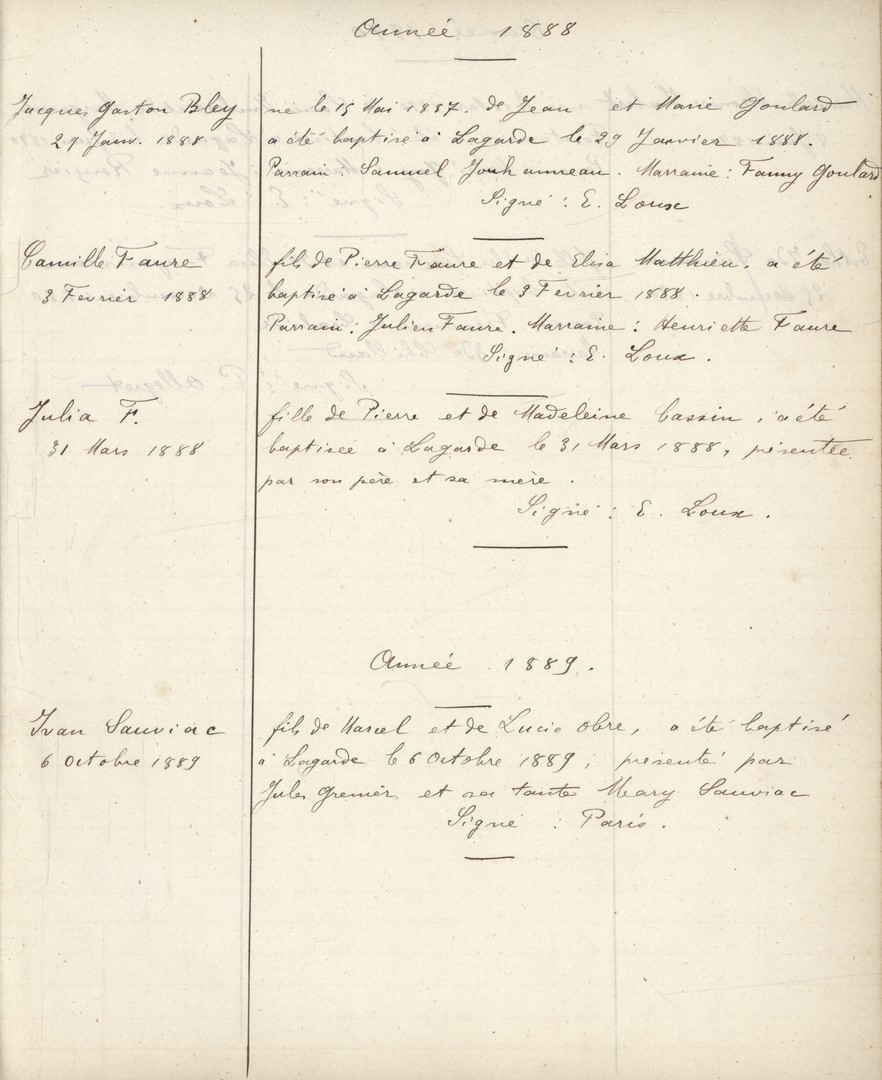 Année 1888
Jacques Gaston Bley
29 Janv. 1888
né le 15 Mai 1887. de Jean et Marie Goulard
a été baptisé à Lagarde le 29 Janvier 1888.
Parrain : Samuel Jouhanneau. Marraine : Fanny Goulard
Signé : E. Loux
Camille Faure
3 Fevrier 1888
fils de Pierre Faure et de Elisa Matthieu. a été
baptisé à Lagarde le 3 Fevrier 1888.
Parrain : Julien Faure. Marraine : Henriette Faure
Signé : E. Loux.
Julia F.
31 Mars 1888
fille de Pierre et de Madeleine Cassin, a été
baptisée à Lagarde le 31 Mars 1888, présentée
par son père et sa mère.
Signé : E. Loux.
Année 1889.
Ivan Sauviac
6 Octobre 1889
fils de Marcel et de Lucie Obre, a été baptisé
à Lagarde le 6 Octobre 1889, présenté par
Jules Grenier et sa tante Mary Sauviac
Signé : Paris.